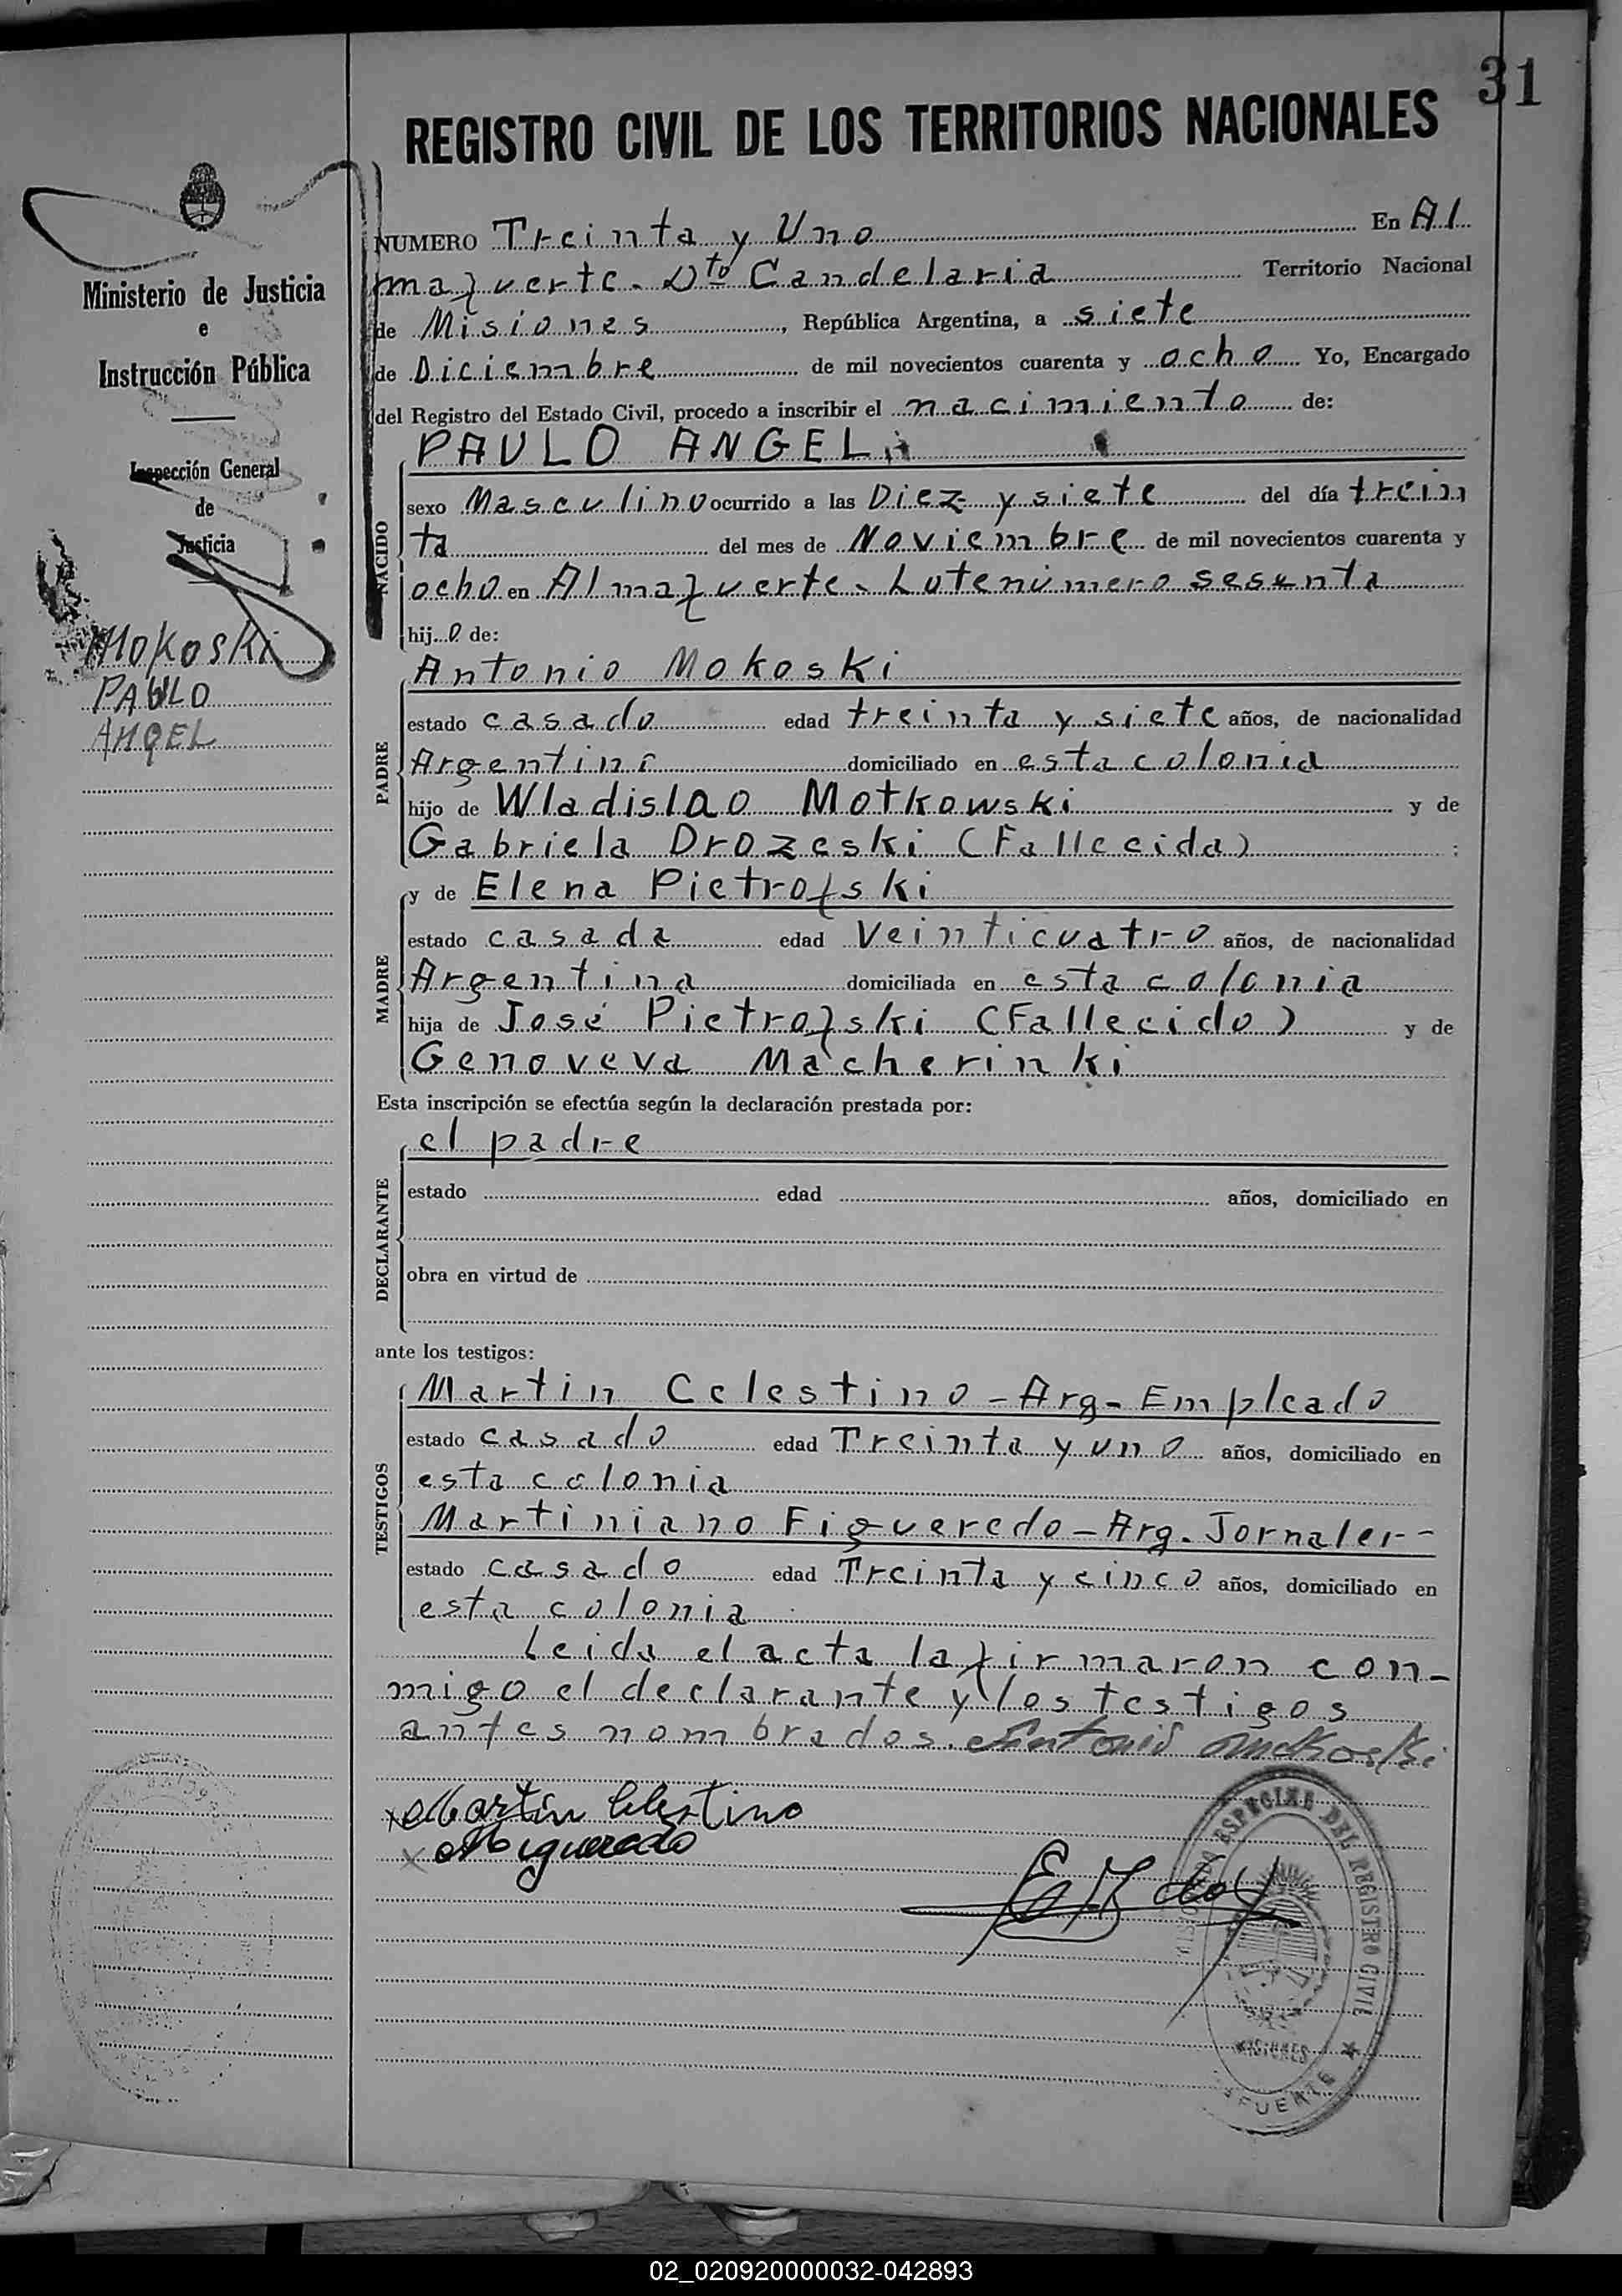 31
REGISTRO CIVIL DE LOS TERRITORIOS NACIONALES
Ministerio de Justicia
e
Instrucción Pública
Inspección General
de
Justicia
MOKOSKi
PAULO
ANGEL
NUMERO Treinta y Uno En Al
mafuerte. Dto Candelaria Territorio Nacional
de Misiones, República Argentina, a siete
de Diciembre de mil novecientos cuarenta y ocho Yo, Encargado
del Registro del Estado Civil, procedo a inscribir el nacimiento de:
NACIDO
PAULO ANGEL
sexo Masculino ocurrido a las Diez y siete del día trein
ta del mes de Noviembre de mil novecientos cuarenta y
ocho en Almafuerte. Lote número sesenta
hijo de:
PADRE
Antonio Mokoski
estado casado edad treinta y siete años, de nacionalidad
Argentina domiciliado en esta colonia
hijo de Wladislao Motkowski y de
Gabriela Drozeski (Fallecida) ;
MADRE
y de Elena Pietrofski
estado casada edad Veinticuatro años, de nacionalidad
Argentina domiciliada en esta colonia
hija de José Pietrofski (Fallecido) y de
Genoveva Macherinki
Esta inscripción se efectúa según la declaración prestada por:
DECLARANTE
el padre
estado edad años, domiciliado en
obra en virtud de
ante los testigos:
TESTIGOS
Martin Celestino - Arg - Empleado
estado casado edad Treinta y uno años, domiciliado en
esta colonia
Martiniano Figueredo - Arg. Jornaler-
estado casado edad Treinta y cinco años, domiciliado en
esta colonia
Leida el acta la firmaron con-
migo el declarante y los testigos
antes nombrados. Antonio Mokoski
x Martin Celestino
x M Figueredo
ESPECIAL DEL REGISTRO CIVIL
MISIONES
FUERTE
02_020920000032-042893